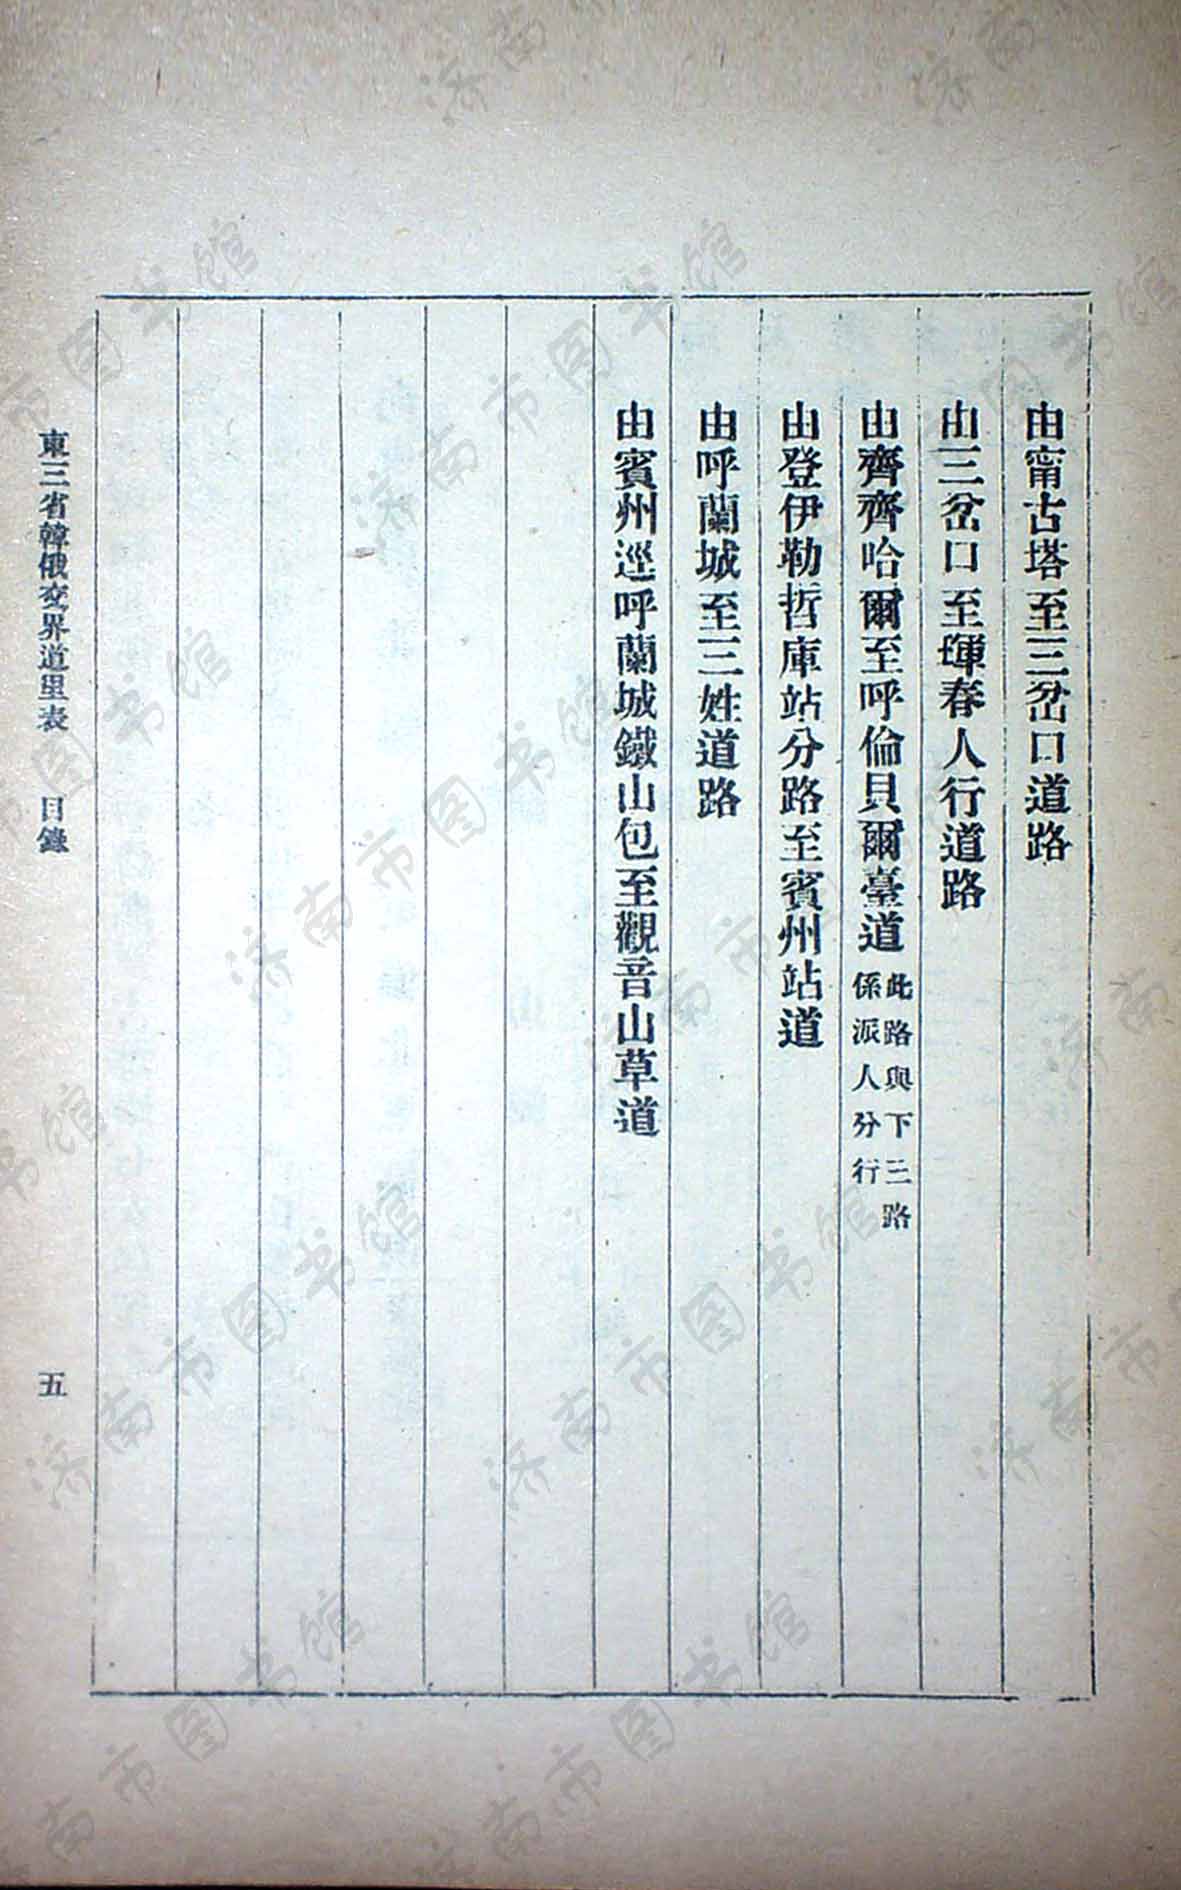 由甯古塔至三岔口道路
由三岔口至琿春人行道路
由齊齊哈爾至呼倫貝爾臺道
此路與下三路
係派人分行
由登伊勒哲庫站分路至賓州站道
由呼蘭城至三姓道路
由賓州逕呼蘭城鐵山包至觀音山草道
東三省韓俄交界道里表 目錄
五
济南市图书馆